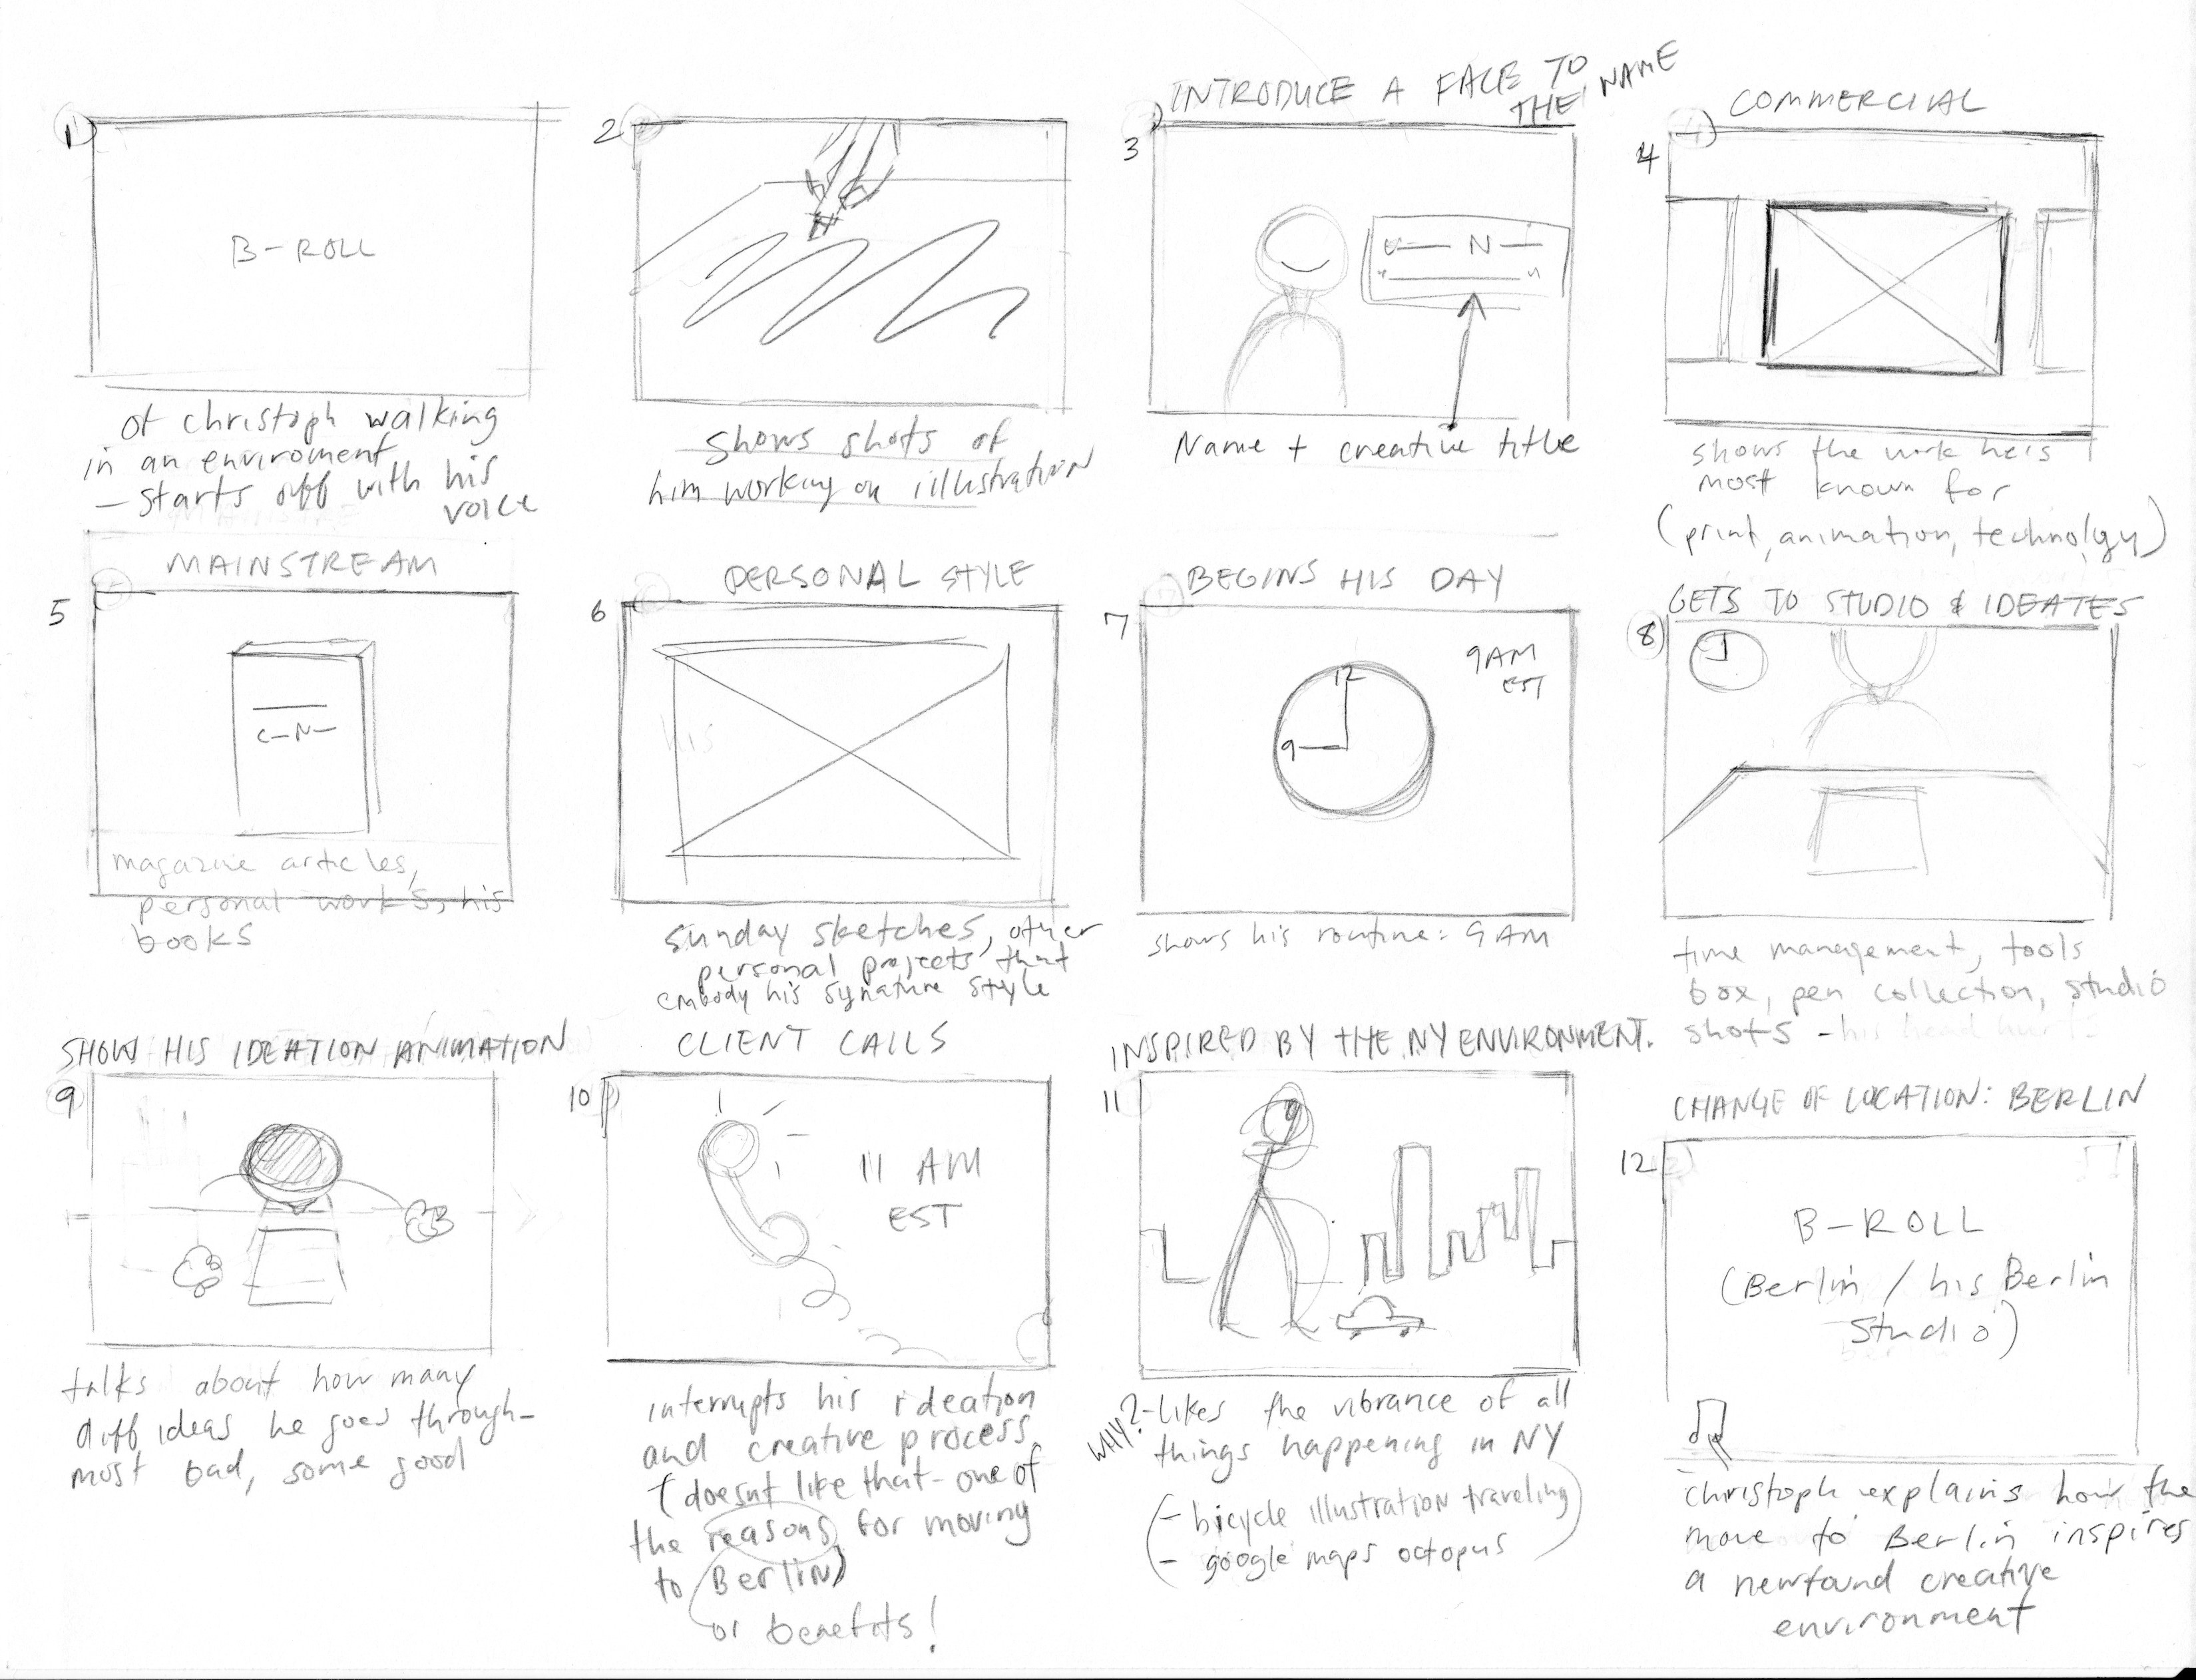 1
B-ROLL
of christoph walking
in an enviroment
- starts off with his
voice
2
shows shots of
him working on illustration
INTRODUCE A FACE TO
THE NAME
3
C— N—
Name + creative title
COMMERCIAL
4
shows the work he is
most known for
(print, animation, technology)
MAINSTREAM
5
C—N—
magazine articles,
personal works, his
books
PERSONAL STYLE
6
his
sunday sketches, other
personal projects that
embody his signature style
BEGINS HIS DAY
7
12
9
9AM
EST
shows his routine: 9AM
GETS TO STUDIO & IDEATES
8
time management, tools
box, pen collection, studio
shots - his head
SHOW HIS IDEATION ANIMATION
9
talks about how many
diff ideas he goes through-
most bad, some good
CLIENT CALLS
10
11 AM
EST
interrupts his ideation
and creative process
(doesnt like that - one of
the reasons for moving
to Berlin)
or benefits!
INSPIRED BY THE NY ENVIRONMENT.
11
WHY?
- likes the vibrance of all
things happening in NY
- bicycle illustration traveling
- google maps octopus
CHANGE OF LOCATION: BERLIN
12
B-ROLL
(Berlin / his Berlin
Studio)
christoph explains how the
move to Berlin inspires
a newfound creative
environment